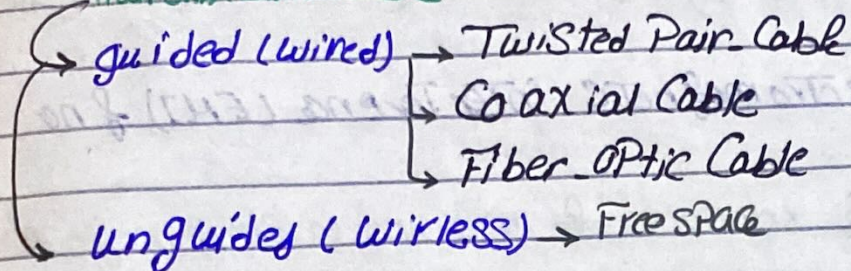 guided (wired) → Twisted Pair Cable
Coaxial Cable
Fiber Optic Cable
unguided (wirless) → Free space